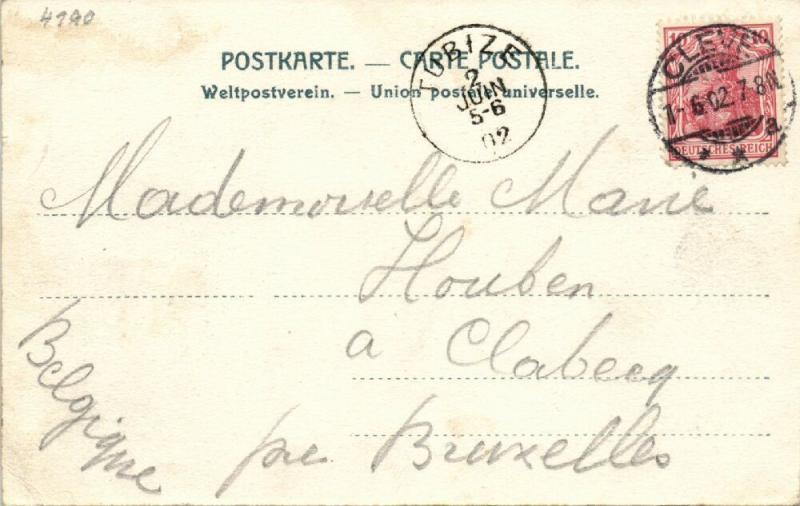 4190
POSTKARTE. — CARTE POSTALE.
Weltpostverein. — Union postale universelle.
TUBIZE
2
JUIN
5-6
02
10 10
CLEVE
1-6.02.7-8N.
a
DEUTSCHES REICH
Mademoiselle Marie
Houben
a Clabecq
pre Bruxelles
Belgique